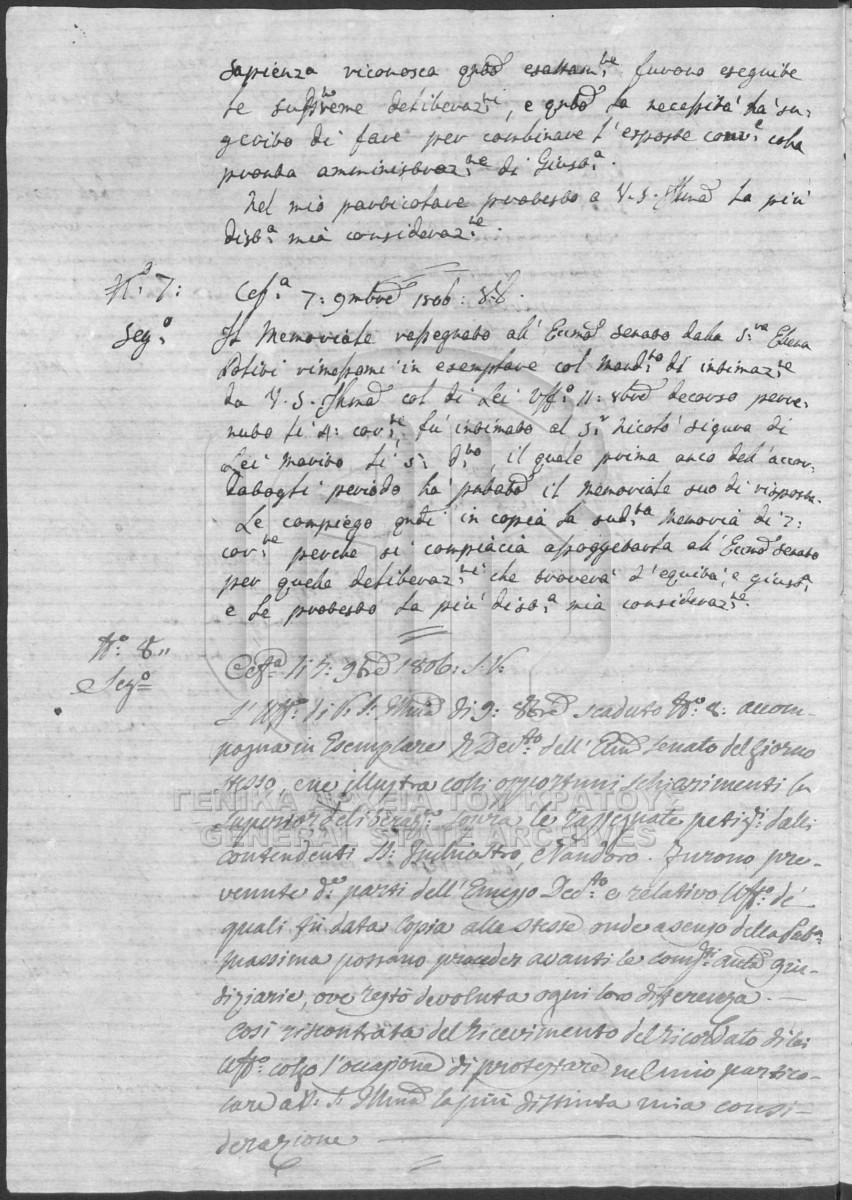 Sapienza riconosca qndo esattam.te furono eseguite
le supreme deliberaz.ni, e qndo la necessità hà su-
gerito di fare per combinare l'esposte colla
pronta amministraz.ne di Giust.a.
Nel mio particolare protesto a V. S. Illma la più
dist.a mia consideraz.ne.
N.o 7: Cef.a 7: 9mbre 1806: S.V.
Seg.o Il Memoriale rassegnato all' Eccmo Senato dalla S.ra Elena
rimessomi in esemplare col Mand.to di intimaz.ne
da V. S. Illma col di Lei Uff.o 11: 8bre decorso perve-
nuto li 4: corr.te, fù intimato al S.r Nicolò Sigura di
Lei Marito li 5: d.to, il quale prima anco dell' accor-
datogli periodo hà il Memoriale suo di risposta.
Le compiego qndi in copia la sud.ta Memoria di 7:
corr.te perche si compiàcia assoggettarla all' Eccmo Senato
per quelle deliberaz.ni che troverà d'equità, e giust.a
e Le protesto la più dist.a mia consideraz.ne.
N.o 8,, Cef.a li 7: 9bre 1806: S.V.
Seg.o L'Uff.o di V. S. Illma di 9: 8bre scaduto N.o 8: accom-
pagna in Esemplare il Dec.to dell' Eccmo Senato del giorno
stesso, che illustra colli opportuni schiarimenti la
superior deliberaz.e soura le rassegnate petiz.i dalli
contendenti e Vandoro. Furono pre-
venute d.e parti dell' Emesso Dec.to e relativo Uff.o de'
quali fù data Copia alle stesse onde a senso della
massima possano proceder avanti le comp.ti auttà giu-
diziarie, ove restò devoluta ogni loro differenza. —
Così riscontrata del ricevimento del ricordato di lei
Uff.o colgo l'occasione di protestare nel mio partico-
lare a V. S. Illma la più distinta mia consi-
derazione
ΓΕΝΙΚΑ ΑΡΧΕΙΑ ΤΟΥ ΚΡΑΤΟΥΣ
GENERAL STATE ARCHIVES